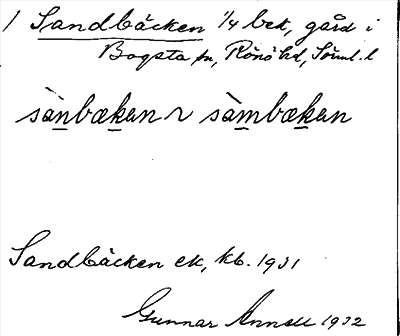 1 Sandbäcken 1/4 bek, gård i
Bogsta sn, Rönö hd, Söml. l
sànbækan ~ sàmbækan
Sandbäcken ek, kb. 1931
Gunnar Annell 1932